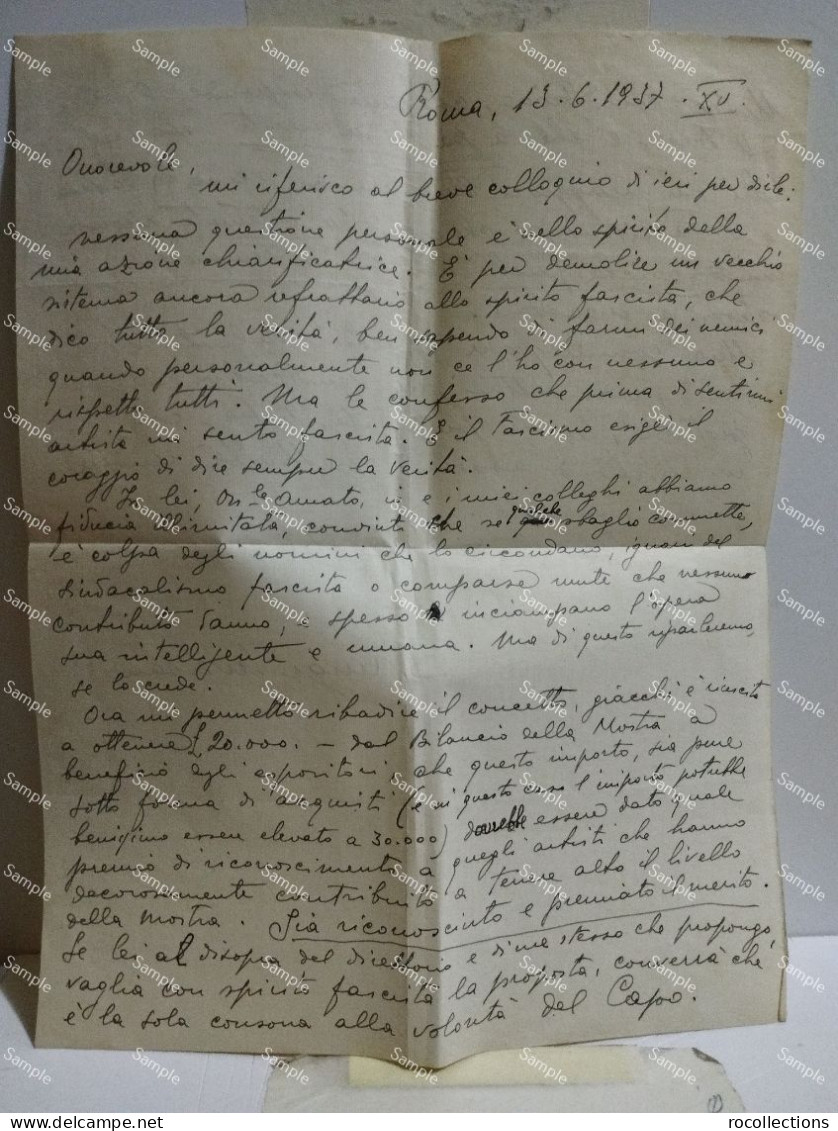 Roma, 13.6.1937.XV.
Onorevole,
mi riferisco al breve colloquio di ieri per dirle:
nessuna questione personale è nello spirito della
mia azione chiarificatrice. È per demolire un vecchio
sistema ancora refrattario allo spirito fascista, che
dico tutta la verità, ben sapendo di farmi dei nemici
quando personalmente non ce l'ho con nessuno e
rispetto tutti. Ma le confesso che prima di sentirmi
artista mi sento fascista. E il Fascismo esige il
coraggio di dire sempre la verità.
In lei, On.le Amato, io e i miei colleghi abbiamo
fiducia illimitata, convinti che se qualche sbaglio commette,
è colpa degli uomini che lo circondano, ignari del
sindacalismo fascista o comparse mute che nessun
contributo danno, e spesso inciampano l'opera
sua intelligente e umana. Ma di questo riparleremo,
se lo crede.
Ora mi permetto ribadire il concetto, giacchè è riuscito
a ottenere £ 20.000.- dal Bilancio della Mostra a
beneficio degli espositori che questo importo, sia pure
sotto forma di acquisti (e in questo caso l'importo potrebbe
benissimo essere elevato a 30.000) dovrebbe essere dato quale
premio di riconoscimento a quegli artisti che hanno
decorosamente contribuito a tenere alto il livello
della Mostra. Sia riconosciuto e premiato il merito.
Se lei al disopra del direttorio e di me stesso che propongo,
vaglia con spirito fascista la proposta, converrà che
è la sola consona alla volontà del Capo.
(2)
Sample
rocollections